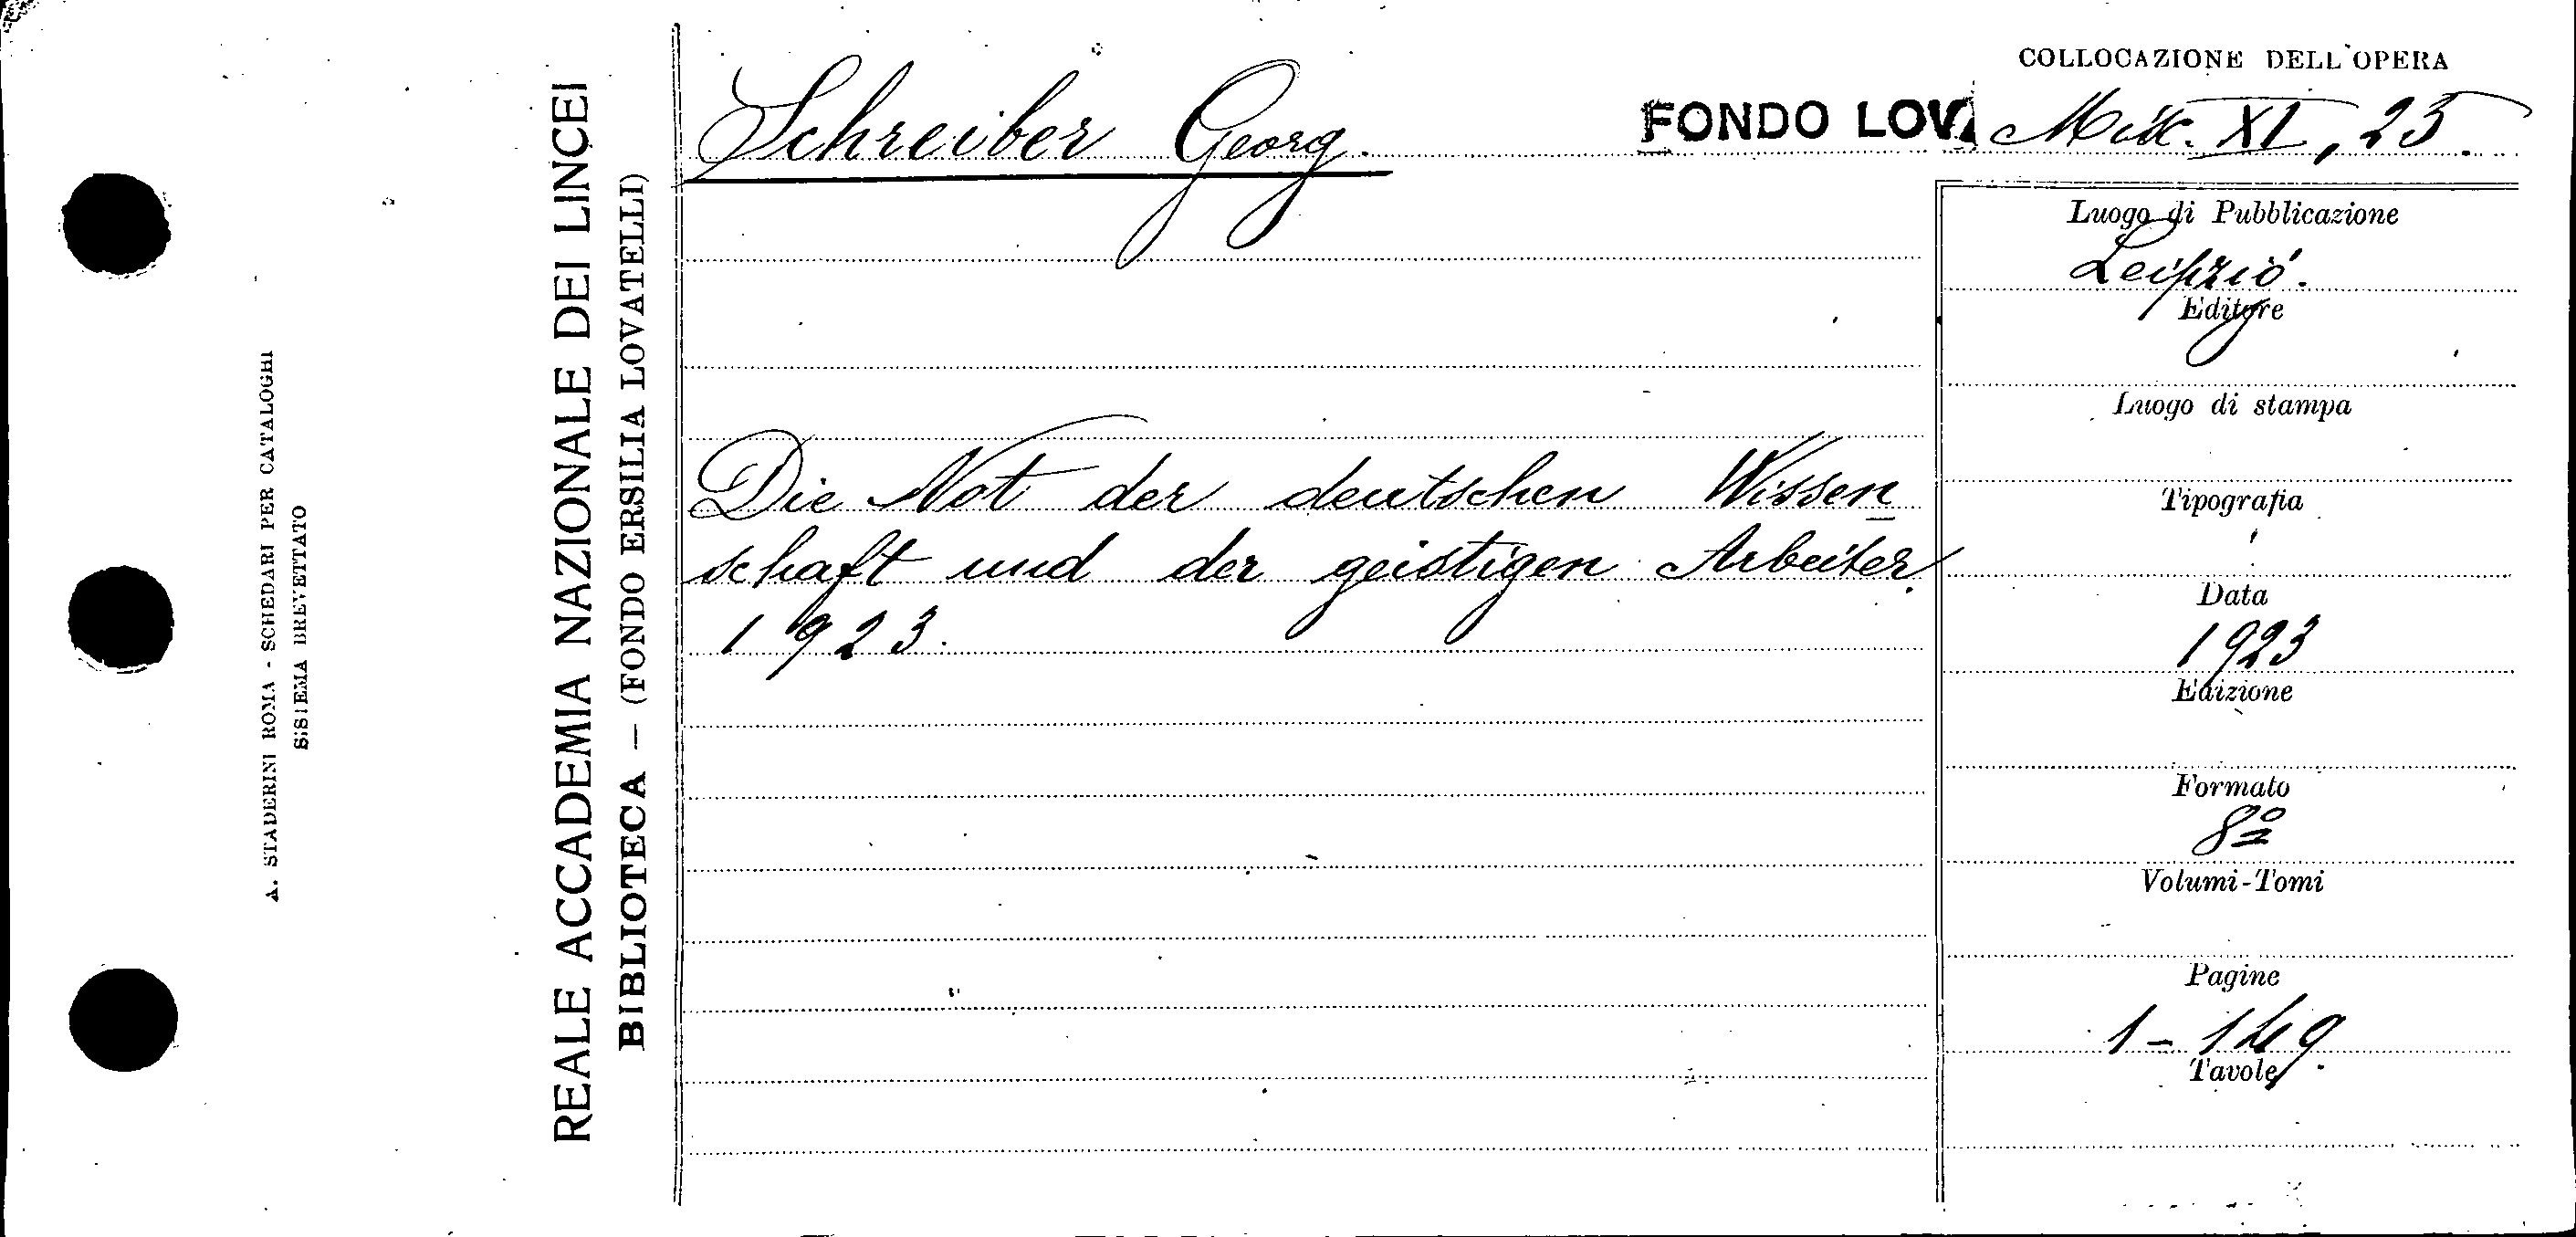 A. STADERINI ROMA - SCHEDARI PER CATALOGHI
SISTEMA BREVETTATO
REALE ACCADEMIA NAZIONALE DEI LINCEI
BIBLIOTECA — (FONDO ERSILIA LOVATELLI)
Schreiber Georg.
Die Not der deutschen Wissen
schaft und der geistigen Arbeiter.
1923.
COLLOCAZIONE DELL'OPERA
FONDO LOV. XI, 25.
Luogo di Pubblicazione
Leipzig.
Editore
Luogo di stampa
Tipografia
Data
1923
Edizione
Formato
8º
Volumi-Tomi
Pagine
1-149
Tavole